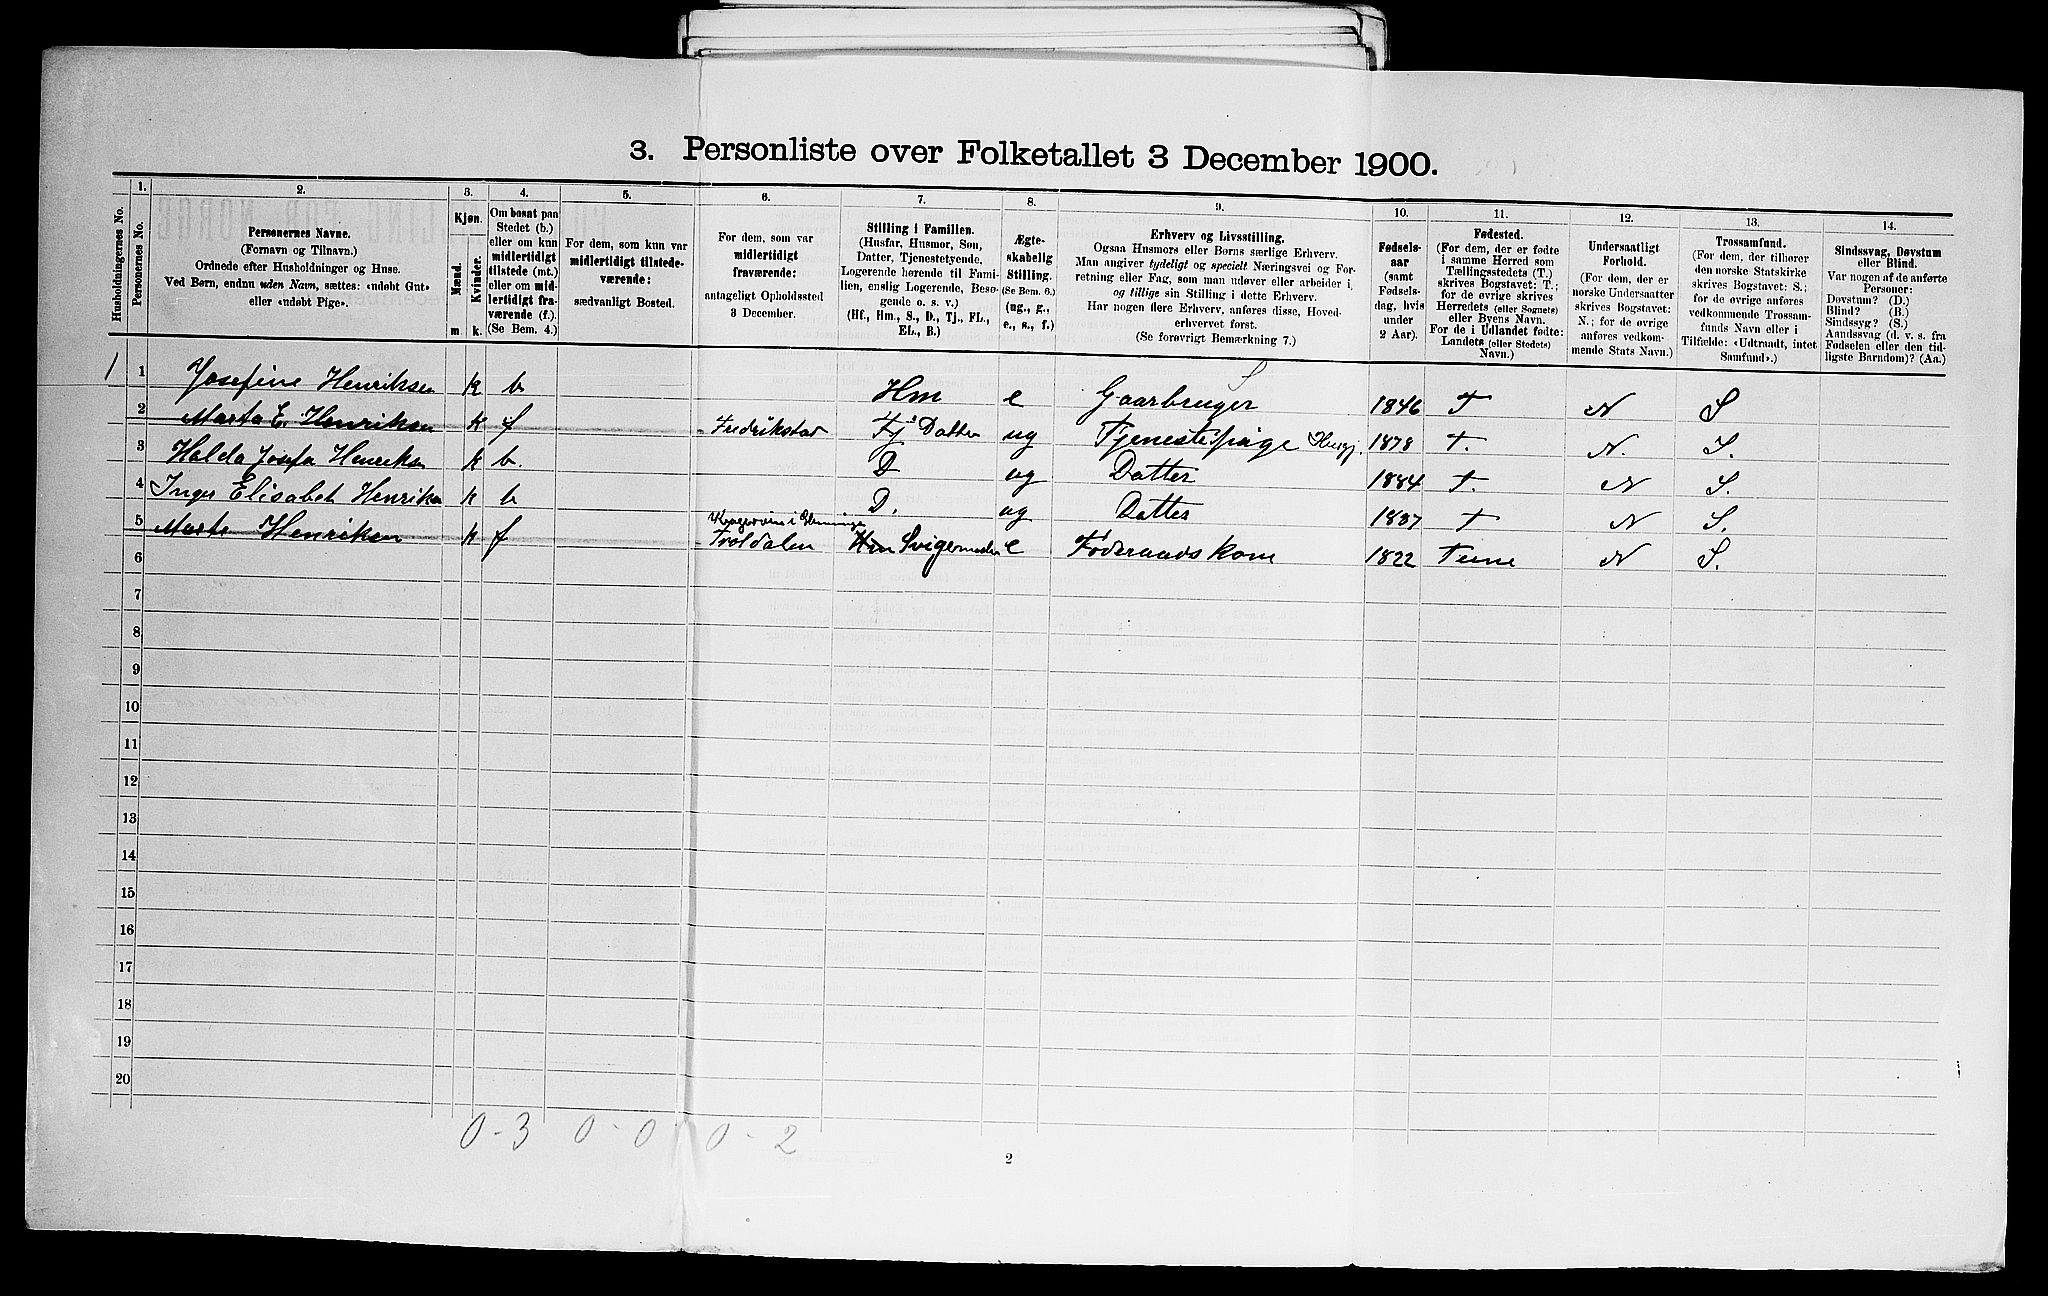 3. Personliste over Folketallet 3 December 1900.
Husholdningernes No.
1.
Personernes No.
2.
Personernes Navne.
(Fornavn og Tilnavn.)
Ordnede efter Husholdninger og Huse.
Ved Børn, endnu uden Navn, sættes: «udøbt Gut»
eller «udøbt Pige».
3.
Kjøn.
Mænd.
Kvinder.
m. k.
4.
Om bosat paa
Stedet (b.)
eller om kun
midlertidigt
tilstede (mt.)
eller om mid-
lertidigt fra-
værende (f.).
(Se Bem. 4.)
5.
For dem, som kun var
midlertidigt tilstede-
værende:
sædvanligt Bosted.
6.
For dem, som var
midlertidigt
fraværende:
antageligt Opholdssted
3 December.
7.
Stilling i Familien.
(Husfar, Husmor, Søn,
Datter, Tjenestetyende,
Logerende hørende til Fami-
lien, enslig Logerende, Besø-
gende o. s. v.)
(Hf., Hm., S., D., Tj., FL.,
EL., B.)
8.
Ægte-
skabelig
Stilling.
(Se Bem. 6.)
(ug., g.,
e., s., f.)
9.
Erhverv og Livsstilling.
Ogsaa Husmors eller Børns særlige Erhverv.
Man angiver tydeligt og specielt Næringsvei og For-
retning eller Fag, som man udøver eller arbeider i,
og tillige sin Stilling i dette Erhverv.
Har nogen flere Erhverv, anføres disse, Hoved-
erhvervet først.
(Se forøvrigt Bemærkning 7.)
10.
Fødsels-
aar
(samt
Fødsels-
dag, hvis
under
2 Aar).
11.
Fødested.
(For dem, der er fødte
i samme Herred som
Tællingsstedets (T.)
skrives Bogstavet: T.;
for de øvrige skrives
Herredets (eller Sognets)
eller Byens Navn.
For de i Udlandet fødte:
Landets (eller Stedets)
Navn.)
12.
Undersaatligt
Forhold.
(For dem, der er
norske Undersaatter
skrives Bogstavet:
N.; for de øvrige
anføres vedkom-
mende Stats Navn.)
13.
Trossamfund.
(For dem, der tilhører
den norske Statskirke
skrives Bogstavet: S.;
for de øvrige anføres
vedkommende Trossam-
funds Navn eller i
Tilfælde: «Udtraadt, intet
Samfund».)
14.
Sindssvag, Døvstum
eller Blind.
Var nogen af de anførte
Personer:
Døvstum? (D.)
Blind? (B.)
Sindssyg? (S.)
Aandssvag (d. v. s. fra
Fødselen eller den tid-
ligste Barndom)? (Aa.)
1 1 Josefine Henriksen k b Hm e Gaarbruger 1846 T N S
2 Marta E. Henriksen k f Fredrikstad Tj Datter ug Tjenestepige 1878 T. N. S.
3 Halda Josefa Henriksen k b. D ug Datter 1884 T. N S.
4 Inger Elisabet Henriksen k b D. ug Datter 1887 T N S.
5 Marte Henriksen k f Troldalen Hm Svigermoder e Føderaadskone 1822 Tune N S.
6
7
8
9
10
11
12
13
14
15
16
17
18
19
20
0-3 0-0 0-2
2